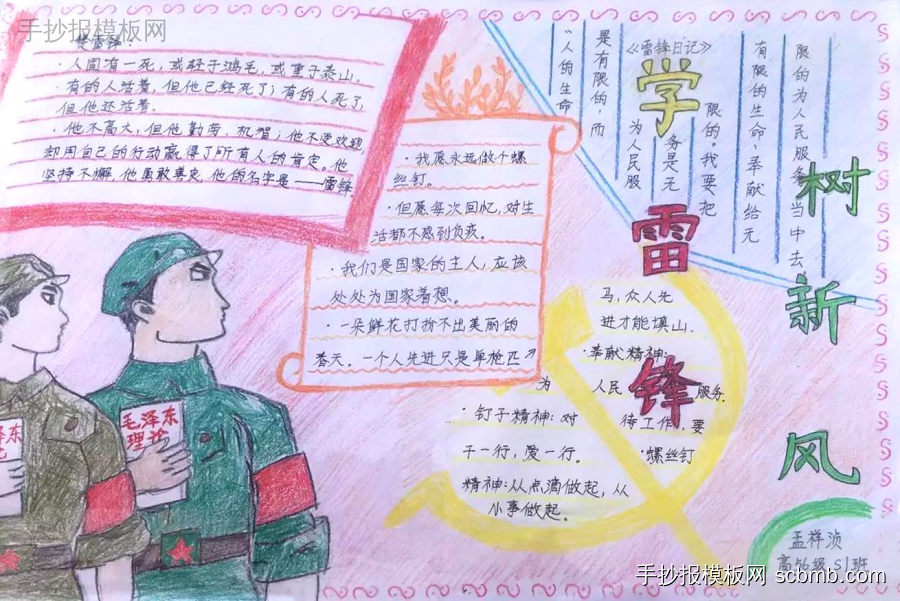 手抄报模板网
赞雷锋：
·人固有一死，或轻于鸿毛，或重于泰山。
·有的人活着，但他已经死了；有的人死了，
但他还活着。
·他不高大，但他勤劳、机智；他不受欢迎，
却用自己的行动赢得了所有人的肯定。他
坚持不懈，他勇敢善良，他的名字是——雷锋.
·我愿永远做个螺
丝钉。
·但愿每次回忆，对生
活都不感到负疚。
·我们是国家的主人，应该
处处为国家着想。
·一朵鲜花打扮不出美丽的
春天。一个人先进只是单枪匹
马，众人先
进才能填山.
·奉献精神：
为人民服务.
·钉子精神：对待工作，要
干一行，爱一行。
·螺丝钉
精神：从点滴做起，从
小事做起.
《雷锋日记》
“人的生命
是有限的，而
为人民服
务是无
限的。我要把
有限的生命，奉献给无
限的为人民服务当中去
学
雷
锋
树
新
风
毛泽东
理论
泽东
论
孟祥浈
高56级 S1班
手抄报模板网 scbmb.com